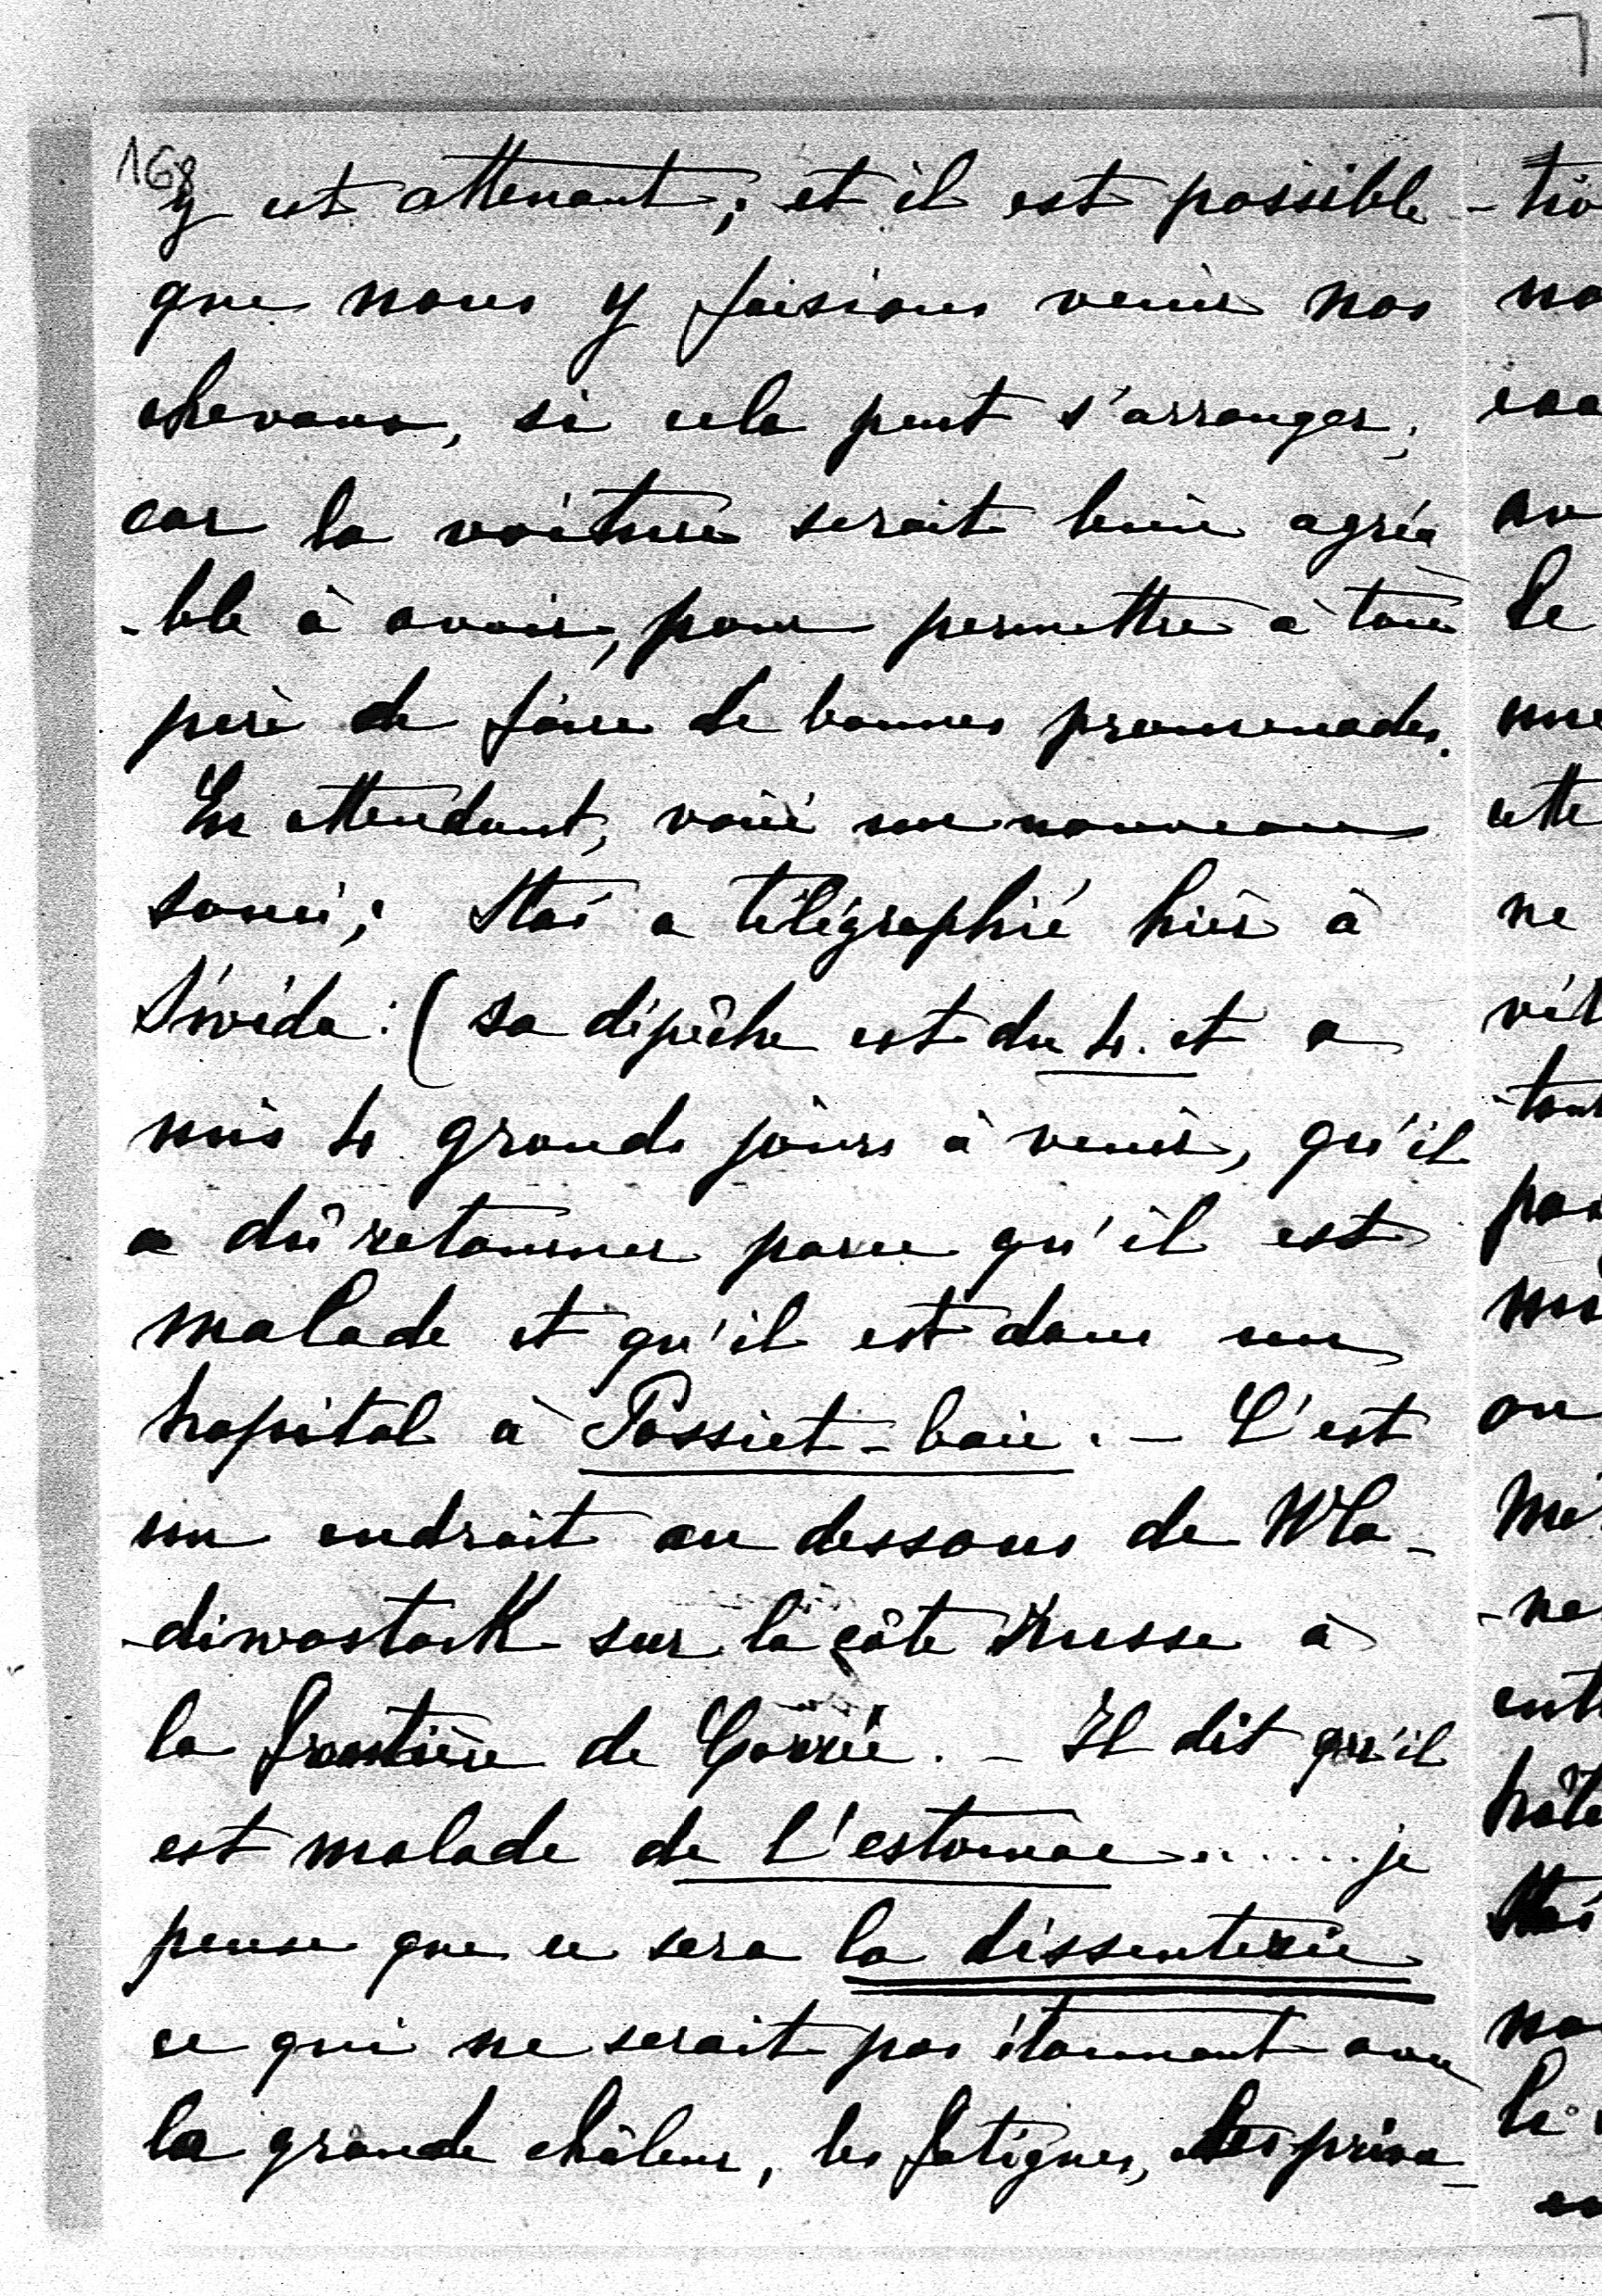 168
y est attenant; et il est possible
que nous y faisions venir nos
chevaux, si cela peut s'arranger;
car la voiture serait bien agréa
-ble à avoir, pour permettre à ton
père de faire de bonnes promenades.
En attendant, voici un nouveau
souci; Stas a télégraphié hier à
(sa dépêche est du 4. et a
mis 4 grands jours à venir, qu'il
a dû retourner parce qu'il est
malade et qu'il est dans un
hopital à Possiet-baie. - C'est
un endroit au dessous de Wla-
-diwostock sur la côte Russe à
la frontière de Corrée. - Il dit qu'il
est malade de l'estomac...... je
pense que ce sera la dissenterie
ce qui ne serait pas étonnant avec
la grande châleur, les fatigues, les priva-